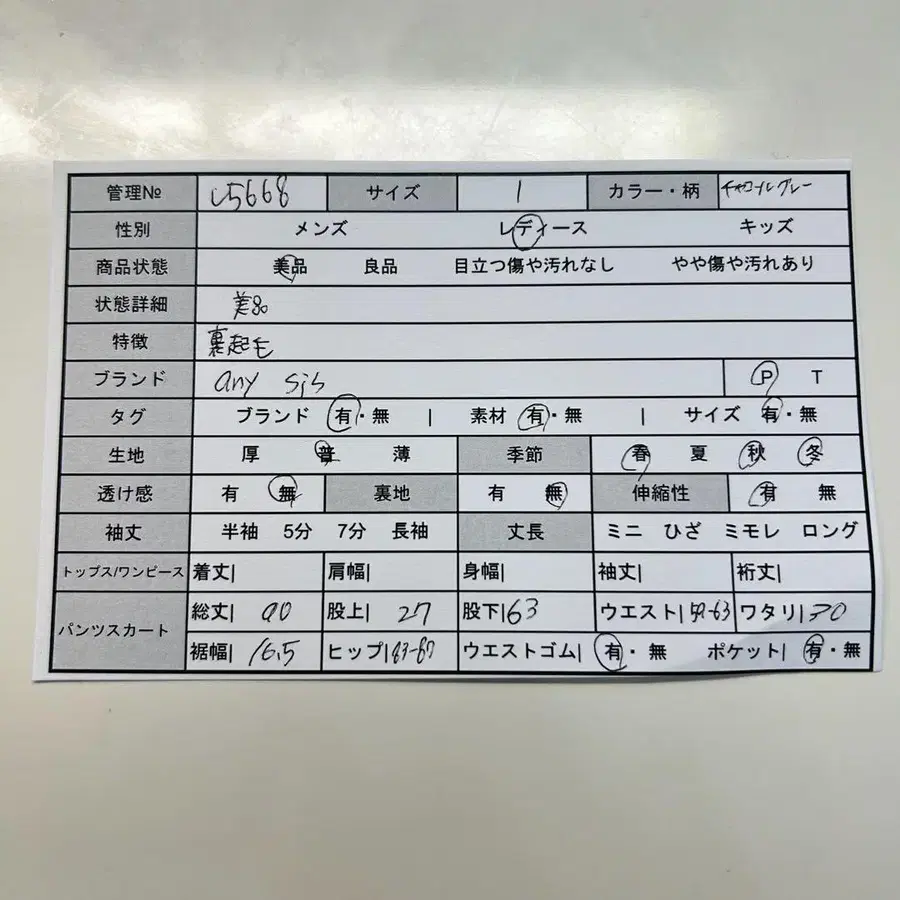 管理№ い5668 サイズ 1 カラー・柄 チャコールグレー
性別 メンズ レディース キッズ
商品状態 美品 良品 目立つ傷や汚れなし やや傷や汚れあり
状態詳細 美品
特徴 裏起毛
ブランド any sis P T
タグ ブランド 有・無 | 素材 有・無 | サイズ 有・無
生地 厚 普 薄 季節 春 夏 秋 冬
透け感 有 無 裏地 有 無 伸縮性 有 無
袖丈 半袖 5分 7分 長袖 丈長 ミニ ひざ ミモレ ロング
トップス/ワンピース 着丈| 肩幅| 身幅| 袖丈| 裄丈|
パンツスカート 総丈| 90 股上| 27 股下| 63 ウエスト| ワタリ| 30
裾幅| 16.5 ヒップ| 83-87 ウエストゴム| 有・無 ポケット| 有・無